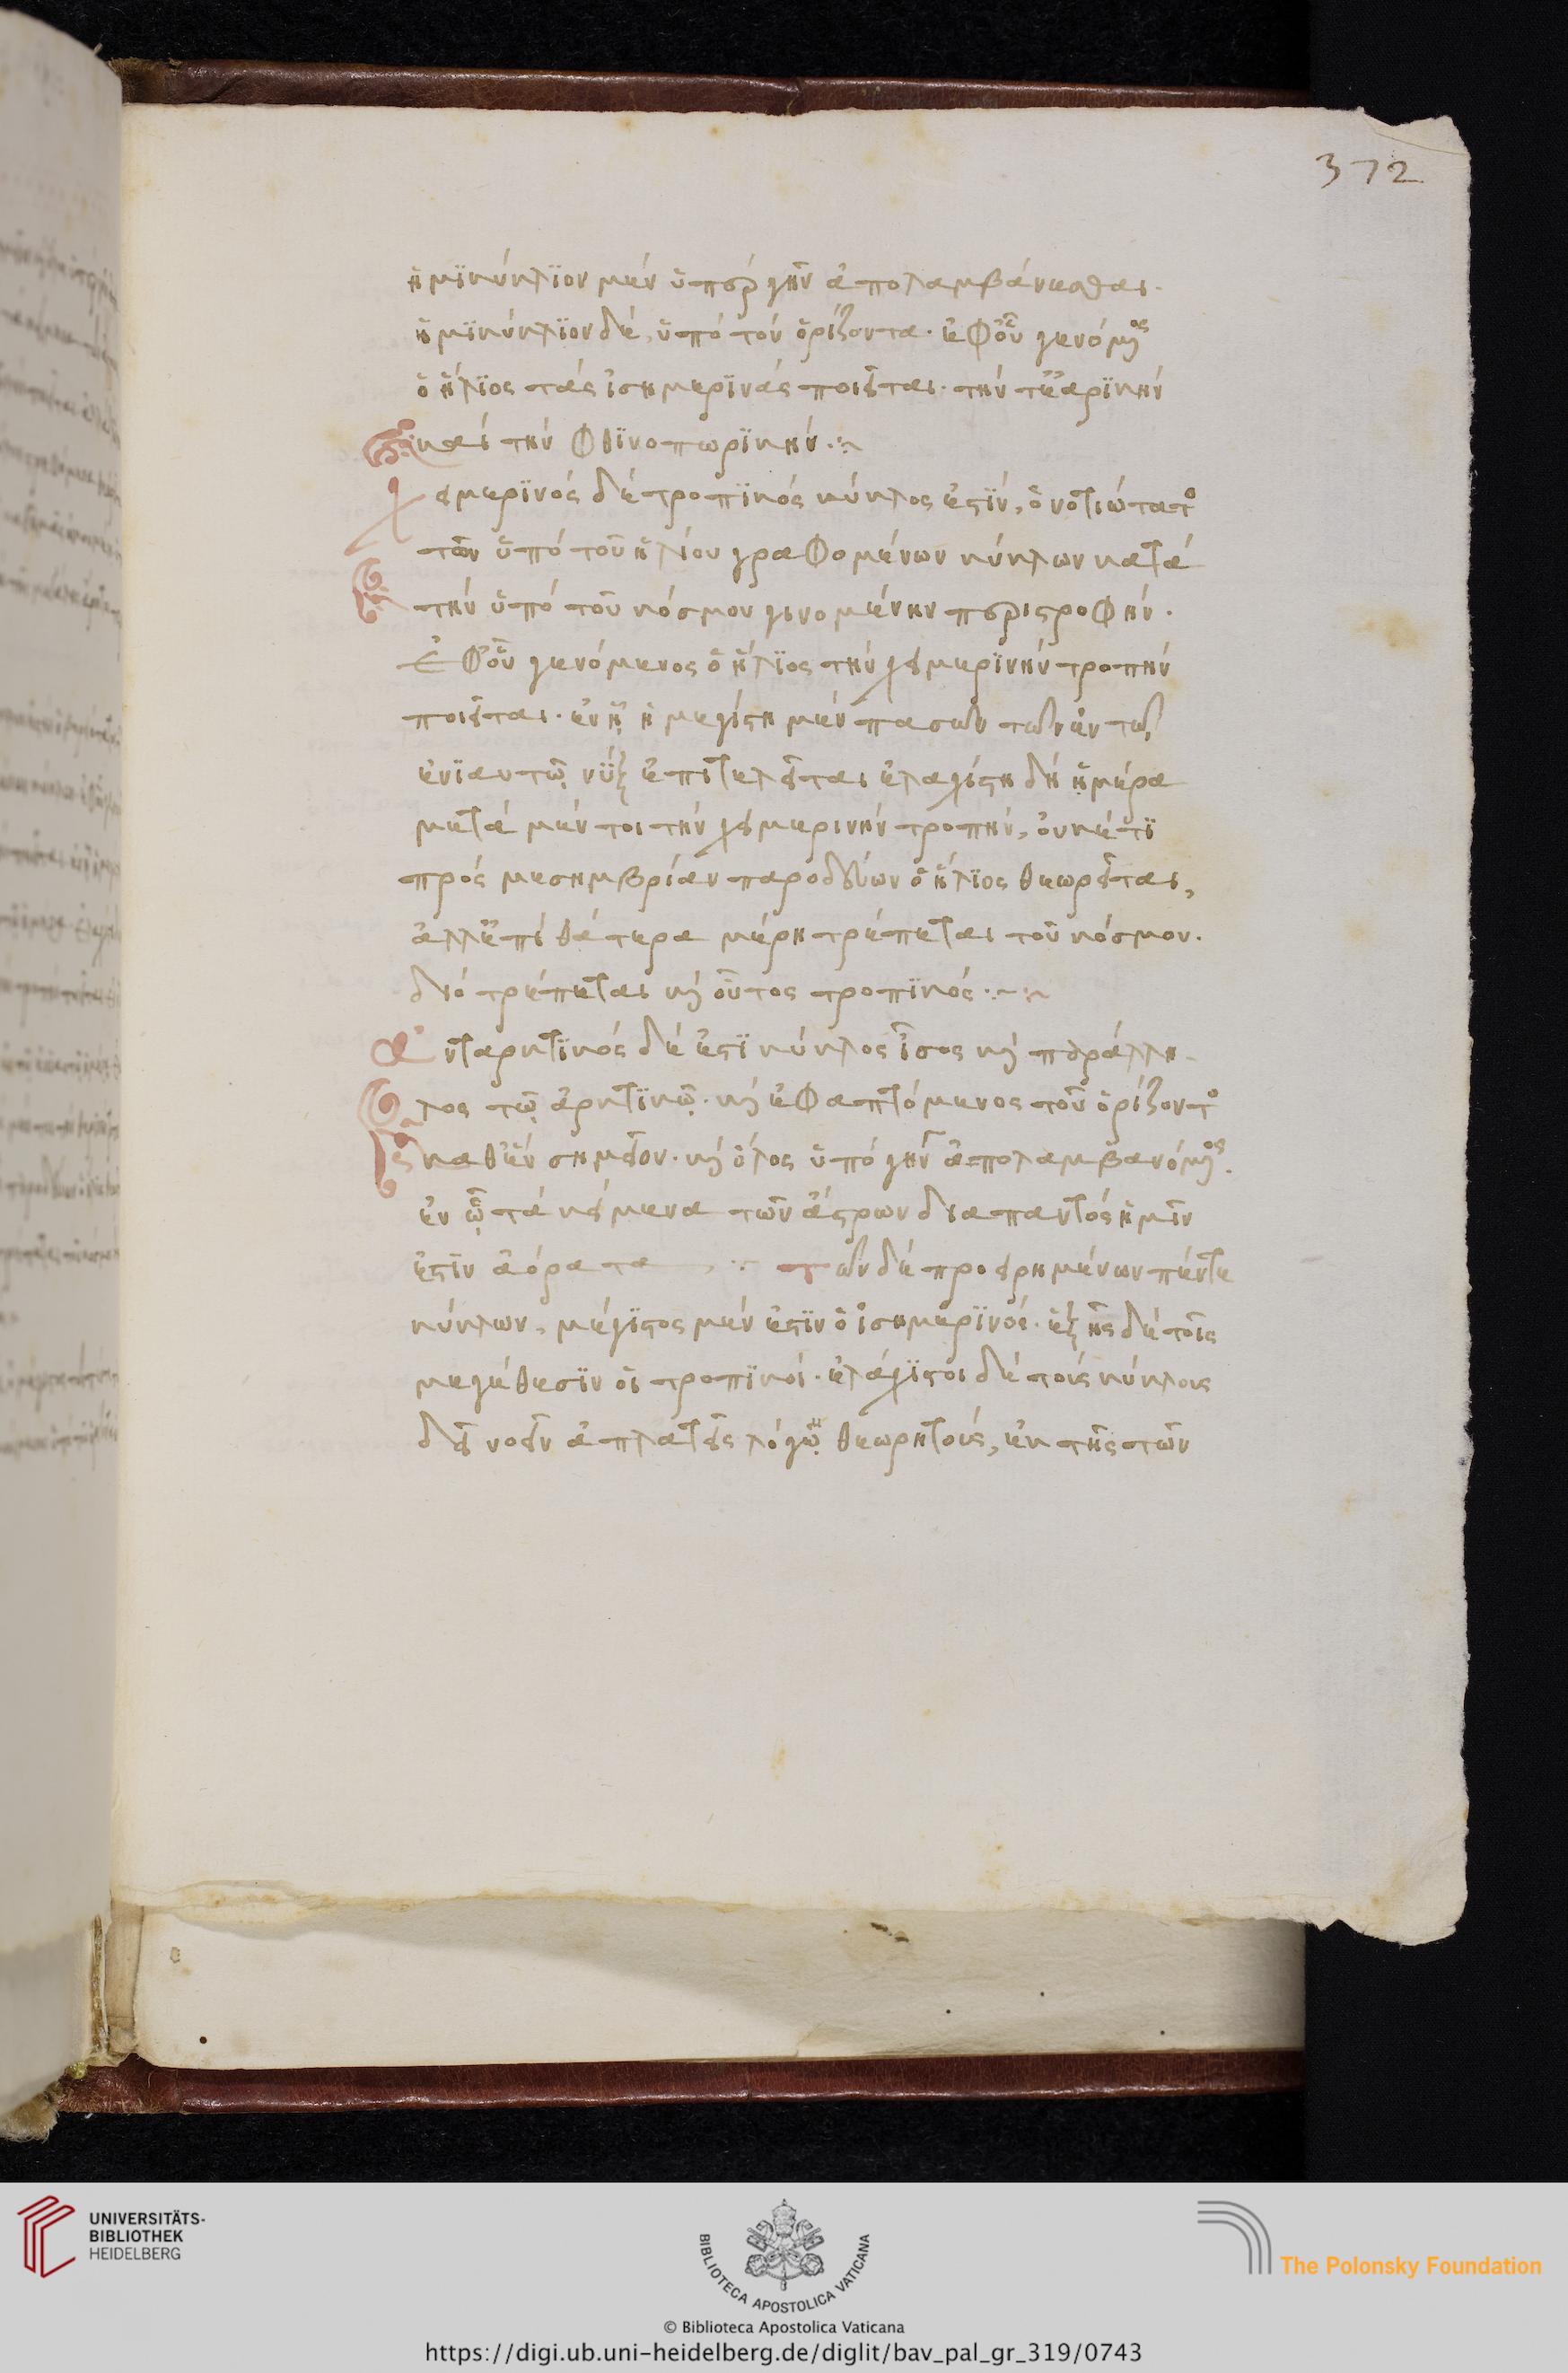 372
ἡμϊκύκλϊον μὲν ὑπὲρ γῆν ἀπολαμβάνεσθαι.
ἡμϊκύκλϊον δὲ, ὑπὸ τὸν ὁρίζοντα. ἐφοῦ γενόμος
ὁ ἥλϊος τὰς ἰσημερϊνὰς ποιεῖται. τήν τεἐαρϊνὴν
καὶ τὴν φθϊνοπωρϊνήν.
χειμερϊνὸς δὲ τροπϊκὸς κύκλος ἐστϊν, ὁ νοτιώτατο
τῶν ὑπὸ τοῦ ἡλίου γραφομένων κύκλων κατὰ
τὴν ὑπὸ τοῦ κόσμου γινομένην περιστροφήν.
Ἐφοῦ γενόμενος ὁ ἥλϊος τὴν χειμερϊνὴν τροπὴν
ποιεῖται. ἐν ᾗ ἡ μεγίστη μὲν πασῶν τῶν ἐν τῷ
ἐνϊαυτῷ νὺξ ἐπιτελεῖται ἐλαχίστη δὴ ἡμέρα
μετὰ μέν τοι τὴν χειμερινὴν τροπήν, οὐκέτϊ
πρὸς μεσημβρίαν παροδεύων ὁ ἥλϊος θεωρεῖται,
ἀλλἐπὶ θάτερα μέρη τρέπεται τοῦ κόσμου.
διὸ τρέπεται κὴ οὗτος τροπϊκός.
ἀνταρκτϊκὸς δέ ἐστϊ κύκλος ἴσος κὴ παράλλη
λος τῷ ἀρκτϊκῷ. κὴ ἐφαπτόμενος τοῦ ὁρίζοντο
καθἓν σημεῖον. κὴ ὅλος ὑπὸ γῆν ἀπολαμβανόμος.
ἐν ᾧ τὰ κείμενα τῶν ἄστρων διαπαντὸς ἡμῖν
ἐστϊν ἀόρατα τῶν δὲ προειρημένων πέντε
κύκλων, μέγϊστος μέν ἐστϊν ὁ ἰσημερϊνός. ἑξῆς δὲ τοῖς
μεγέθεσϊν οἱ τροπϊκοί. ἐλάχϊστοι δὲ τοὺς κύκλους
δεῖ νοεῖν ἀπλατεῖς λόγῳ θεωρητούς, ἐκ τῆς τῶν
UNIVERSITÄTS-
BIBLIOTHEK
HEIDELBERG
BIBLIOTECA APOSTOLICA VATICANA
The Polonsky Foundation
© Biblioteca Apostolica Vaticana
https://digi.ub.uni-heidelberg.de/diglit/bav_pal_gr_319/0743